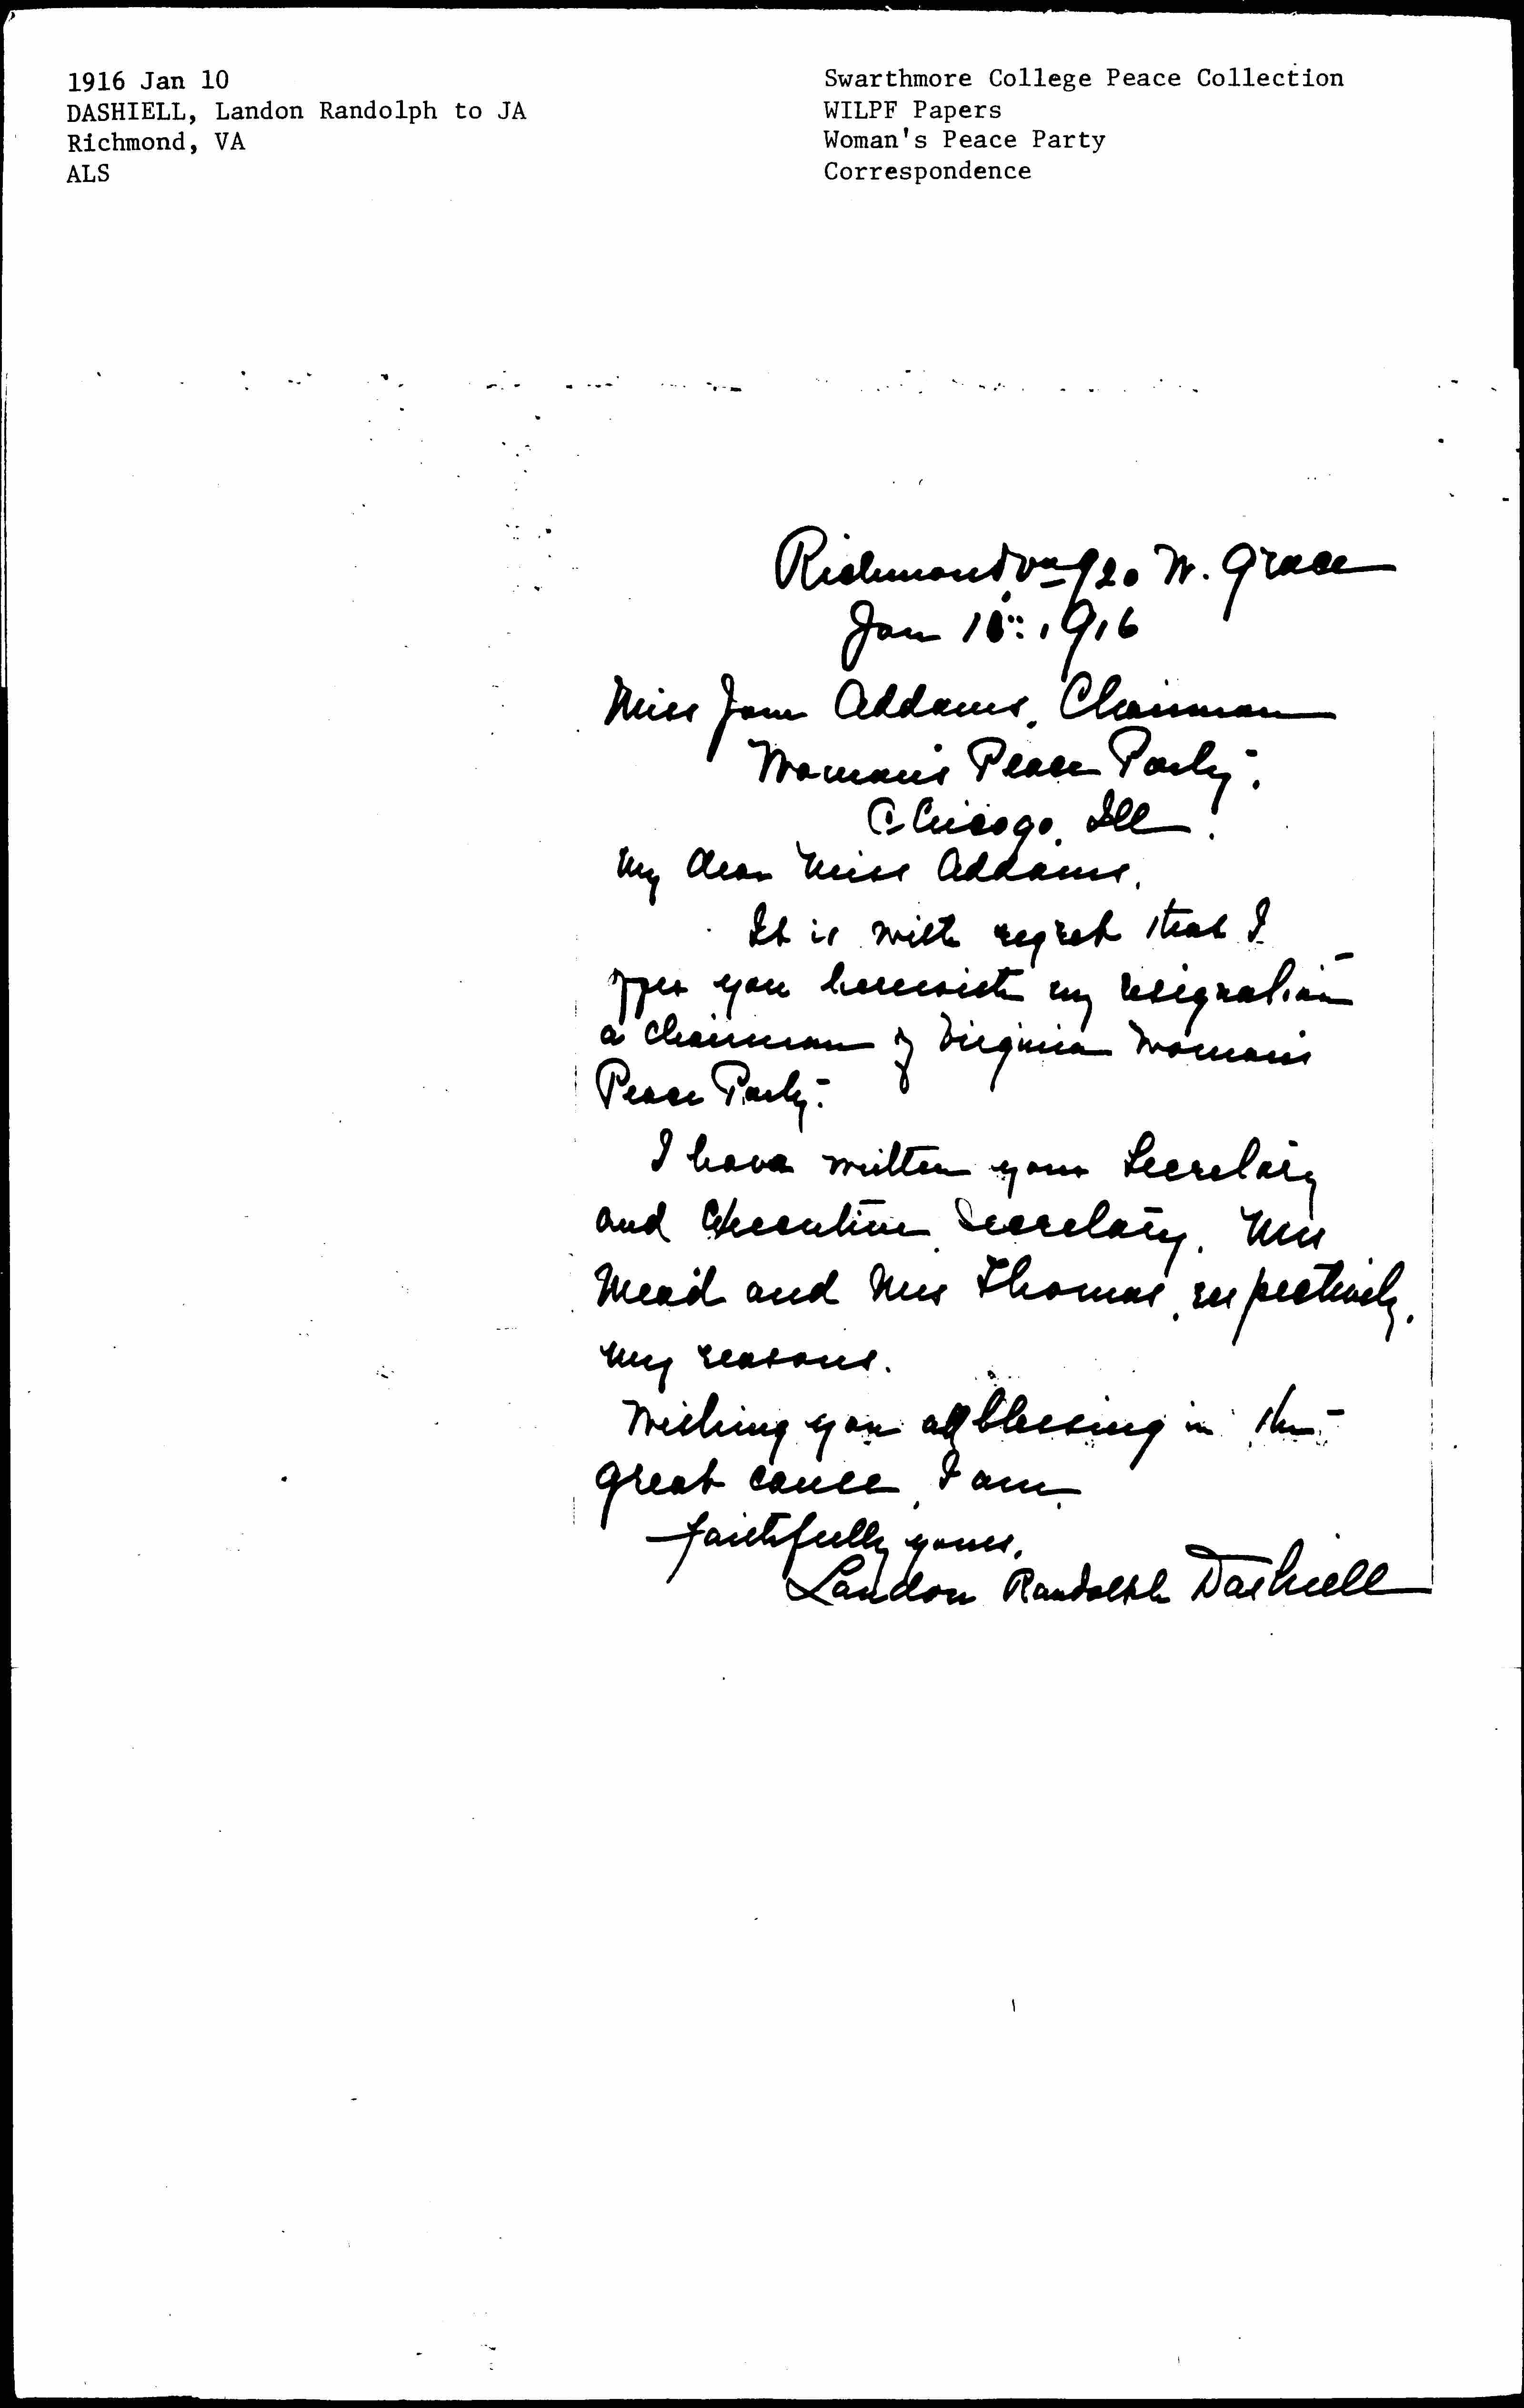 1916 Jan 10
DASHIELL, Landon Randolph to JA
Richmond, VA
ALS
Swarthmore College Peace Collection
WILPF Papers
Woman's Peace Party
Correspondence
Richmond Va 920 W. Grace
Jan 10th 1916
Miss Jane Addams, Chairman
Woman's Peace Party.
Chicago, Ill.
My dear Miss Addams,
It is with regret that I
offer you herewith my resignation
as chairman of Virginia Woman's
Peace Party.
I have written your Secretary
and Executive Secretary, Mrs
Mead and Mrs Thomas, respectively,
my reasons.
Wishing you all blessing in the
great cause, I am,
Faithfully yours,
Landon Randolph Dashiell